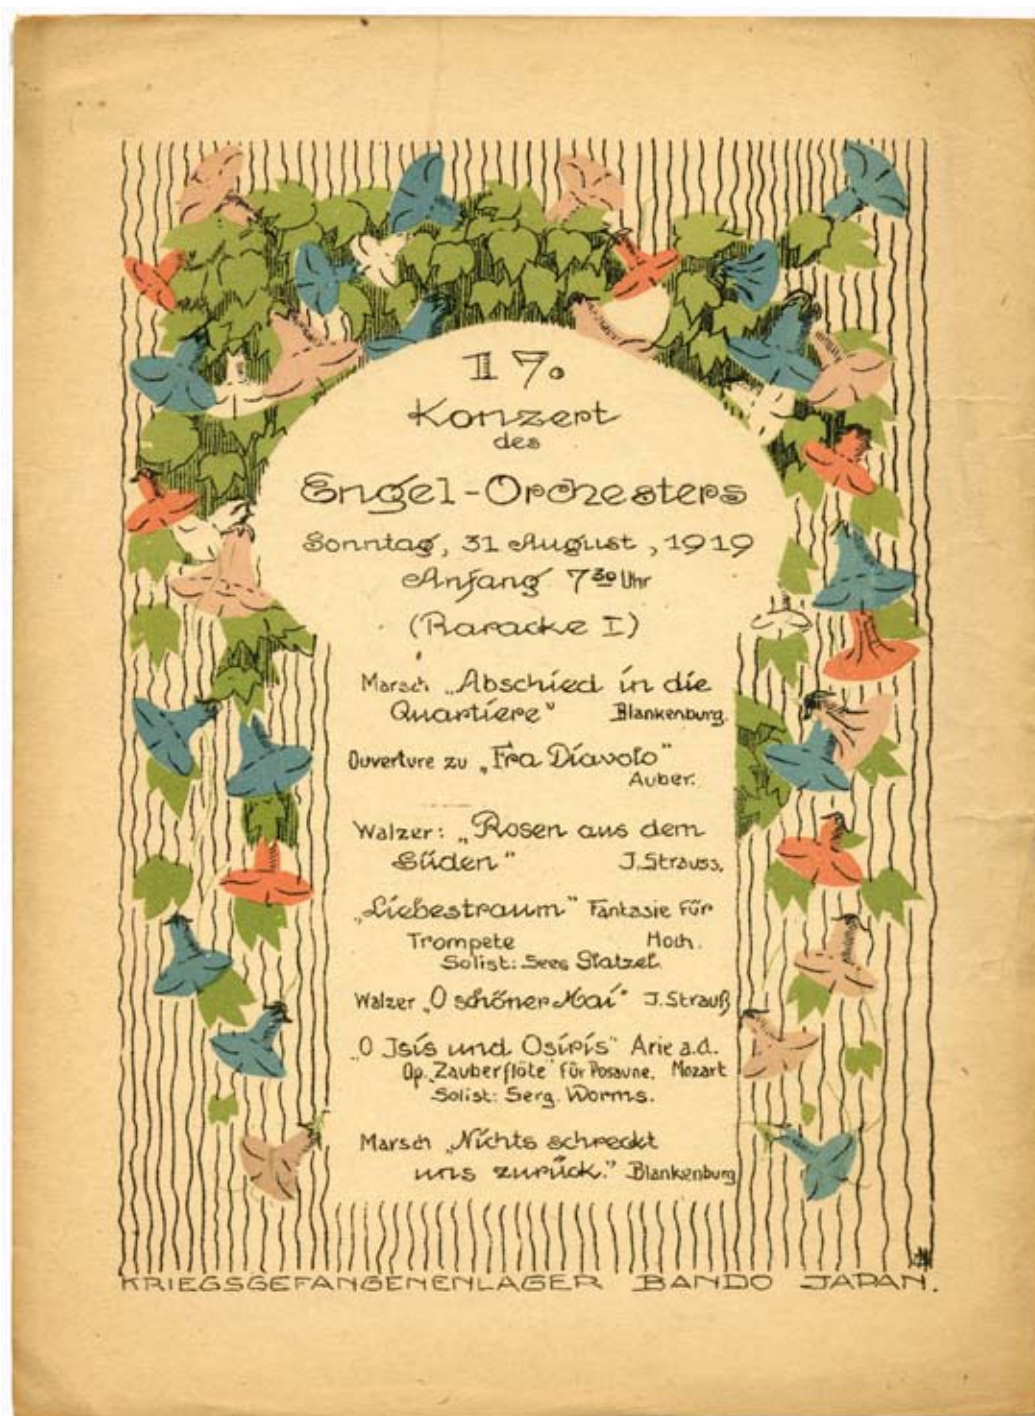 17.
Konzert
des
Engel-Orchesters
Sonntag, 31 August, 1919
Anfang 7³⁰ Uhr
(Baracke I)
Marsch „Abschied in die
Quartiere" Blankenburg.
Ouverture zu „Fra Diavolo"
Auber.
Walzer: „Rosen aus dem
Süden" J. Strauss.
„Liebestraum" Fantasie für
Trompete Hoch.
Solist: Sees
Walzer „O schöner Mai" J. Strauß
„O Isis und Osiris" Arie a.d.
Op. „Zauberflöte" für Posaune. Mozart
Solist: Serg. Worms.
Marsch „Nichts schreckt
uns zurück." Blankenburg
KRIEGSGEFANGENENLAGER BANDO JAPAN.